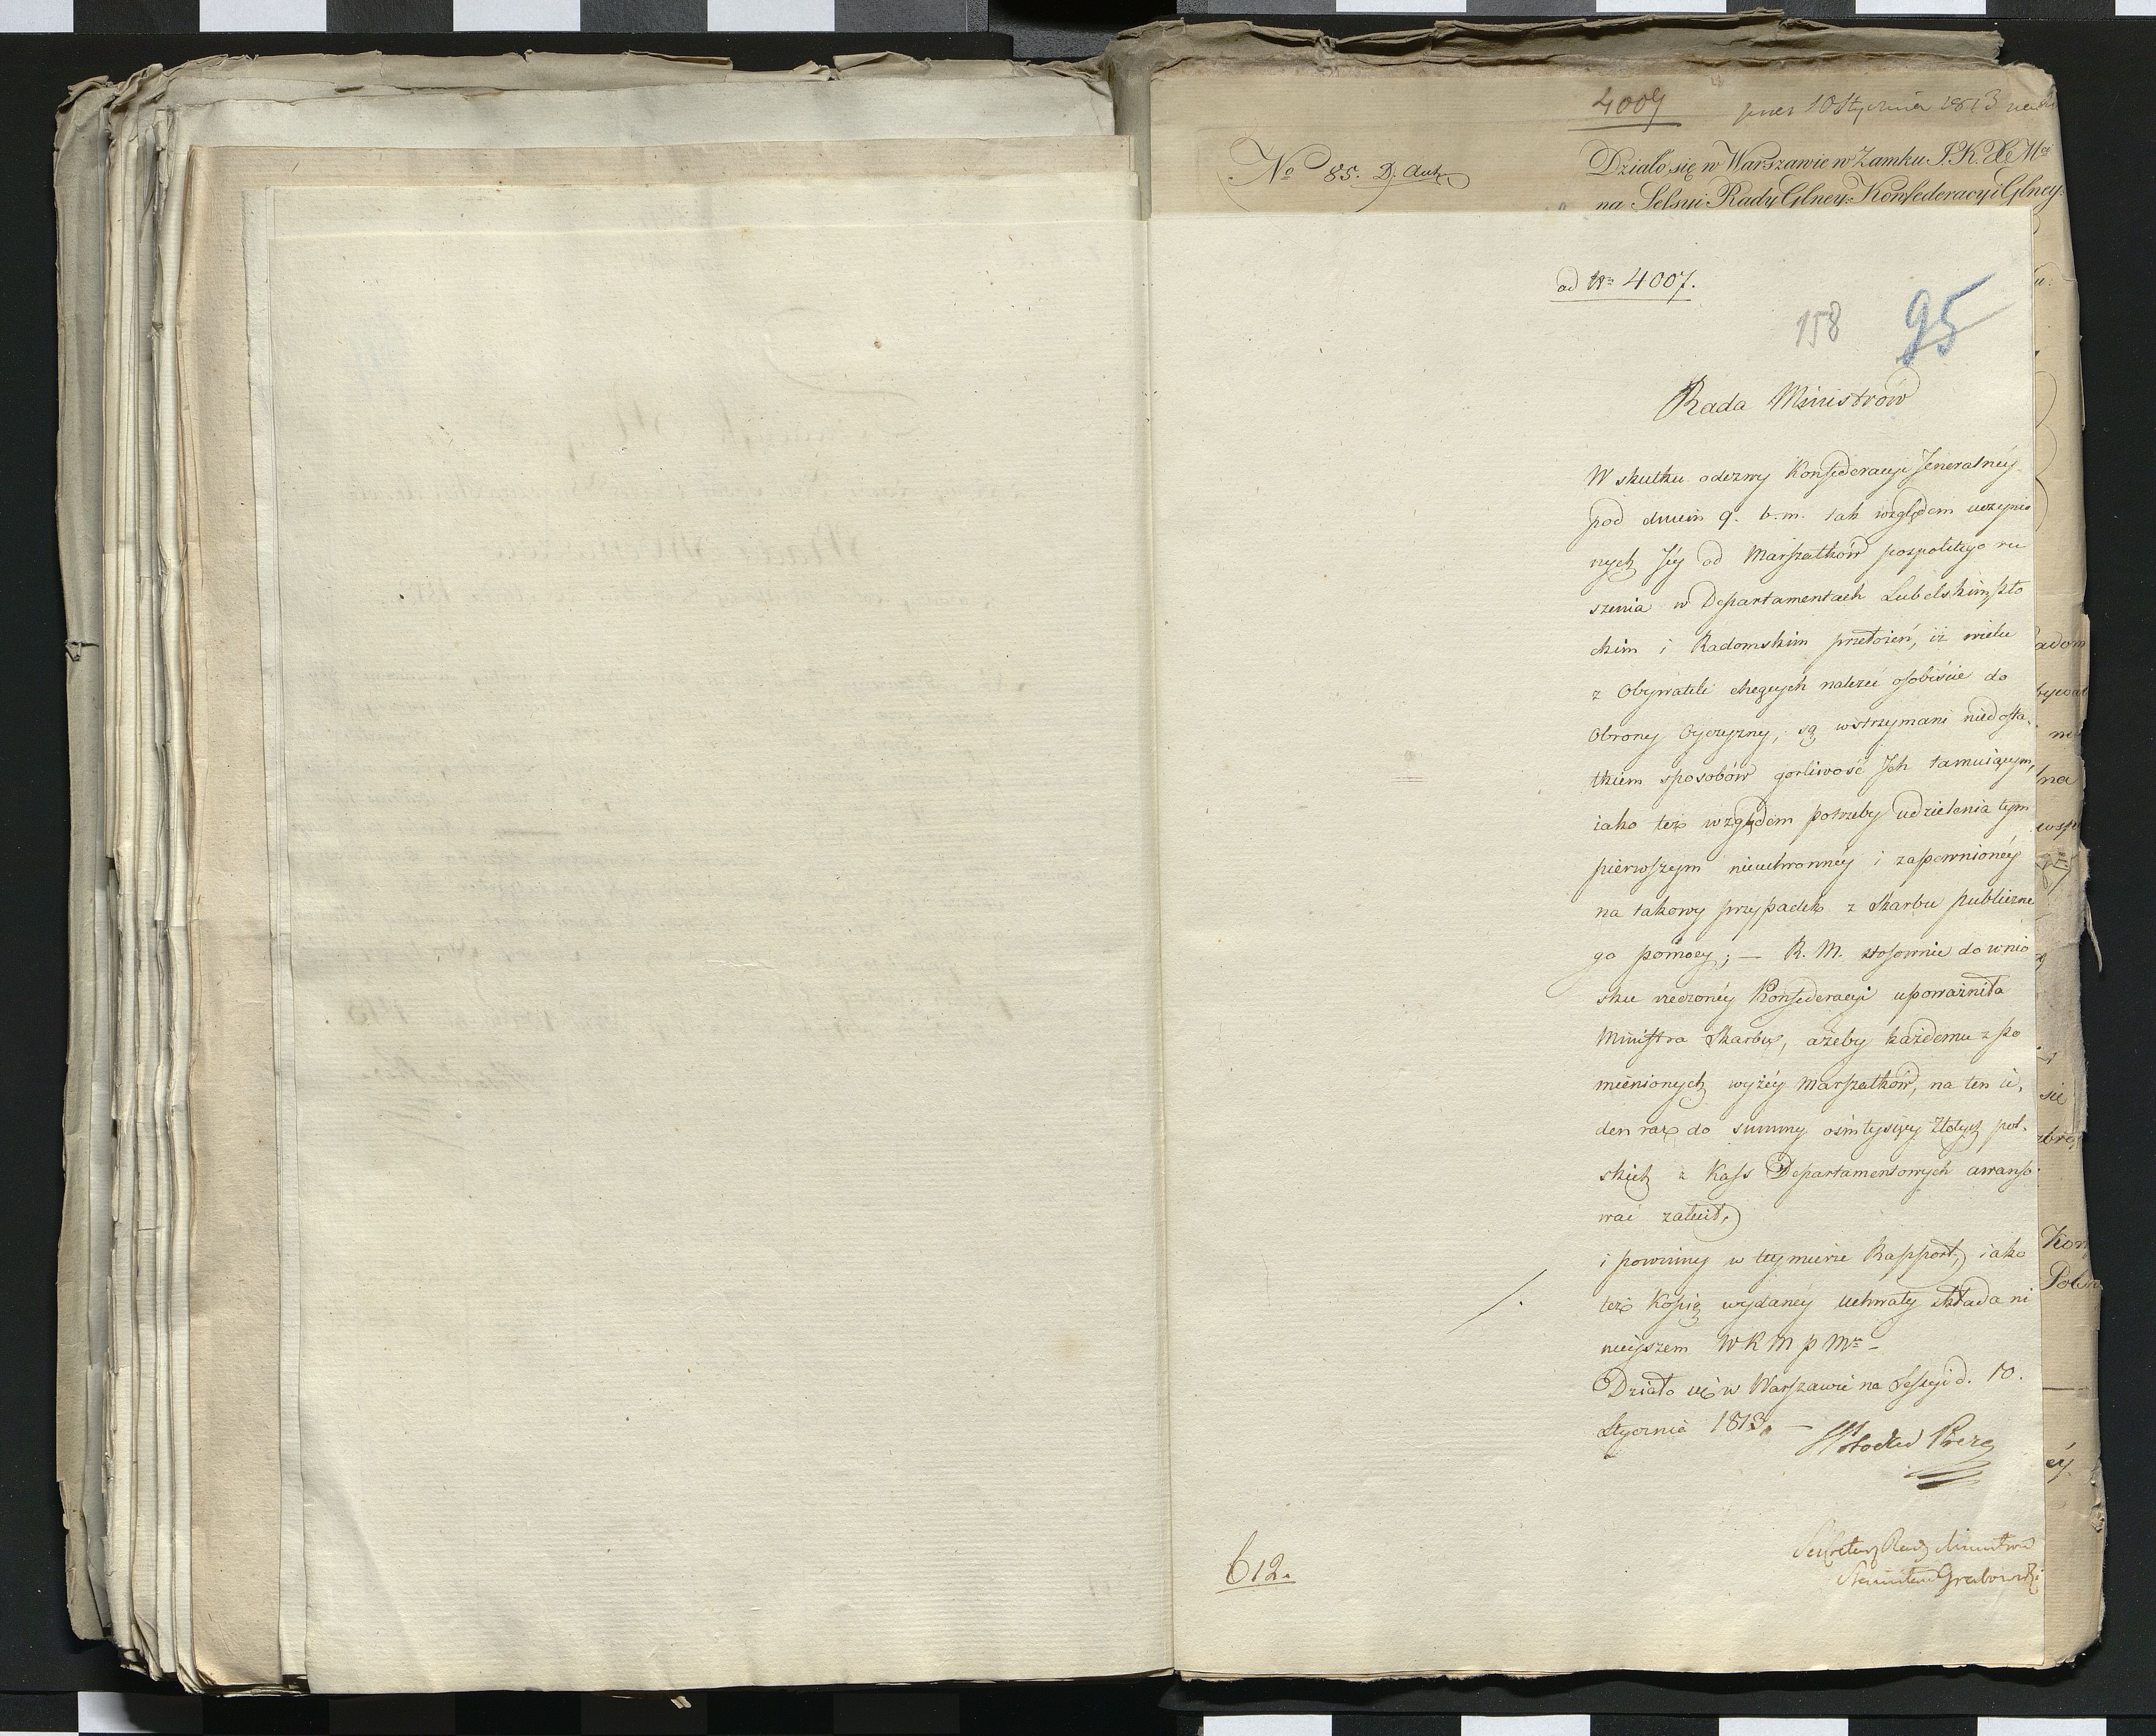 4007 10 Stycznia 1813
No 85. D. Działo się w Warszawie w Zamku J. K. Xcey Mci
na Sessyi Rady Glney Konfederacyi Glney
ad Nro 4007.
158 95
Rada Ministrów
W skutku odezwy Konfederacyi Jeneralnéy
pod dniem 9. b. m. tak względem uczynio
nych Jéy od Marszałków pospolitego ru
szenia w Departamentach Lubelskim, Pło
ckim i Radomskim przełożeń, iż wielu
z Obywateli chcących należeć osobiście do
Obrony Oyczyzny, są wstrzymani niedosta-
tkiem sposobów gorliwość Jch tamuiącym,
iako też względem potrzeby udzielenia tym
pierwszym nieuchronnéy i zapewnionéy
na takowy przypadek z Skarbu publiczne
go pomocy; — R. M. stosownie do wnio
sku rzeczonéy Konfederacyi upoważniła
Ministra Skarbu, ażeby każdemu z po
mienionych wyżéy Marszałków, na ten ie,
den raz do summy ośmtysięcy Złotych pol-
skich z Kass Departamentowych awanso-
wać zalecił,
i powinny w téy mierze Rapport, iako
też Kopią wydanéy uchwały składa ni
nieyszem W K M p Mu -
Działo się w Warszawie na Sessyi d. 10.
Stycznia 1813. —
Prezes
612.
Sekretarz Rady Ministrów
Stanisław Grabowski